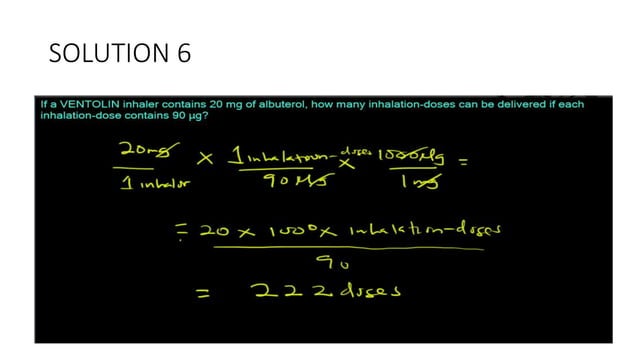 SOLUTION 6
If a VENTOLIN inhaler contains 20 mg of albuterol, how many inhalation-doses can be delivered if each
inhalation-dose contains 90 µg?
20mg × 1 inhalation-doses × 1000µg =
1 inhaler 90 µg 1mg
= 20 × 1000 × inhalation-doses
90
= 222 doses